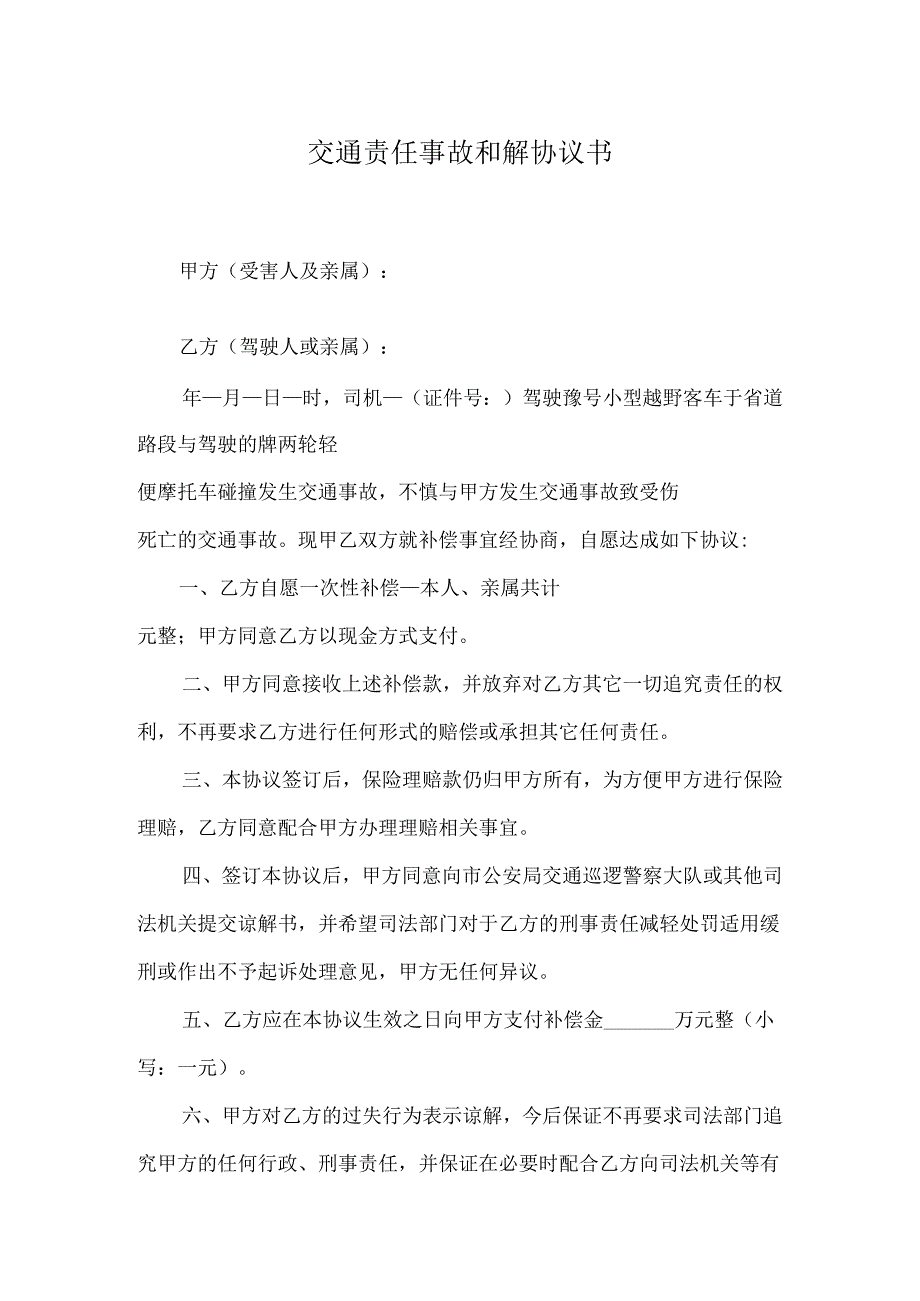 交通责任事故和解协议书
甲方（受害人及亲属）：
乙方（驾驶人或亲属）：
年—月—日—时，司机—（证件号：）驾驶豫号小型越野客车于省道
路段与驾驶的牌两轮轻
便摩托车碰撞发生交通事故，不慎与甲方发生交通事故致受伤
死亡的交通事故。现甲乙双方就补偿事宜经协商，自愿达成如下协议:
一、乙方自愿一次性补偿—本人、亲属共计
元整；甲方同意乙方以现金方式支付。
二、甲方同意接收上述补偿款，并放弃对乙方其它一切追究责任的权
利，不再要求乙方进行任何形式的赔偿或承担其它任何责任。
三、本协议签订后，保险理赔款仍归甲方所有，为方便甲方进行保险
理赔，乙方同意配合甲方办理理赔相关事宜。
四、签订本协议后，甲方同意向市公安局交通巡逻警察大队或其他司
法机关提交谅解书，并希望司法部门对于乙方的刑事责任减轻处罚适用缓
刑或作出不予起诉处理意见，甲方无任何异议。
五、乙方应在本协议生效之日向甲方支付补偿金_______万元整（小
写：一元）。
六、甲方对乙方的过失行为表示谅解，今后保证不再要求司法部门追
究甲方的任何行政、刑事责任，并保证在必要时配合乙方向司法机关等有